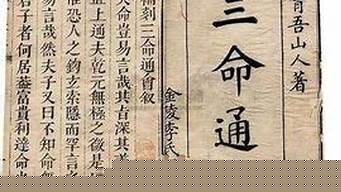 育吾山人著
三命通
金陵李氏
刻三命通會敘
夫命豈易言哉其旨深其
上通夫乾元無極之微是
惟恐人之鉤立索隱而罕言
易言哉然夫子又曰不知命無
君子者何居蓋富貴利達命